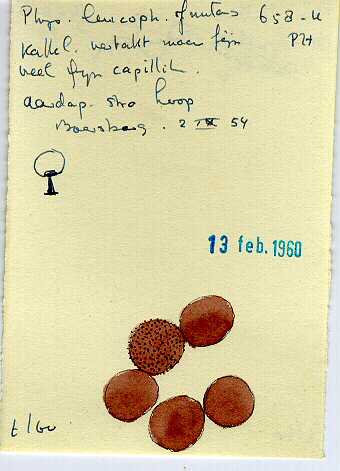 Phys. leucoph. f nutans 658-u
Kalkk. vertakt maar fijn P4
veel fijn capillit.
aardap. stro hoop
Boersberg. 2 IX 54
13 feb. 1960